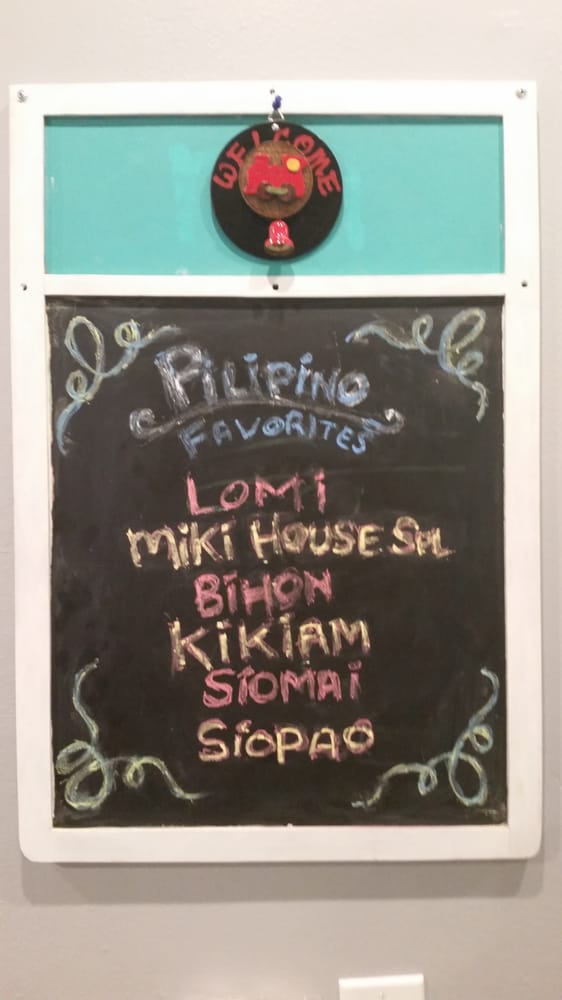 WELCOME
PILIPINO
FAVORITES
LOMI
MIKI HOUSE SPL
BIHON
KIKIAM
SIOMAI
SIOPAO